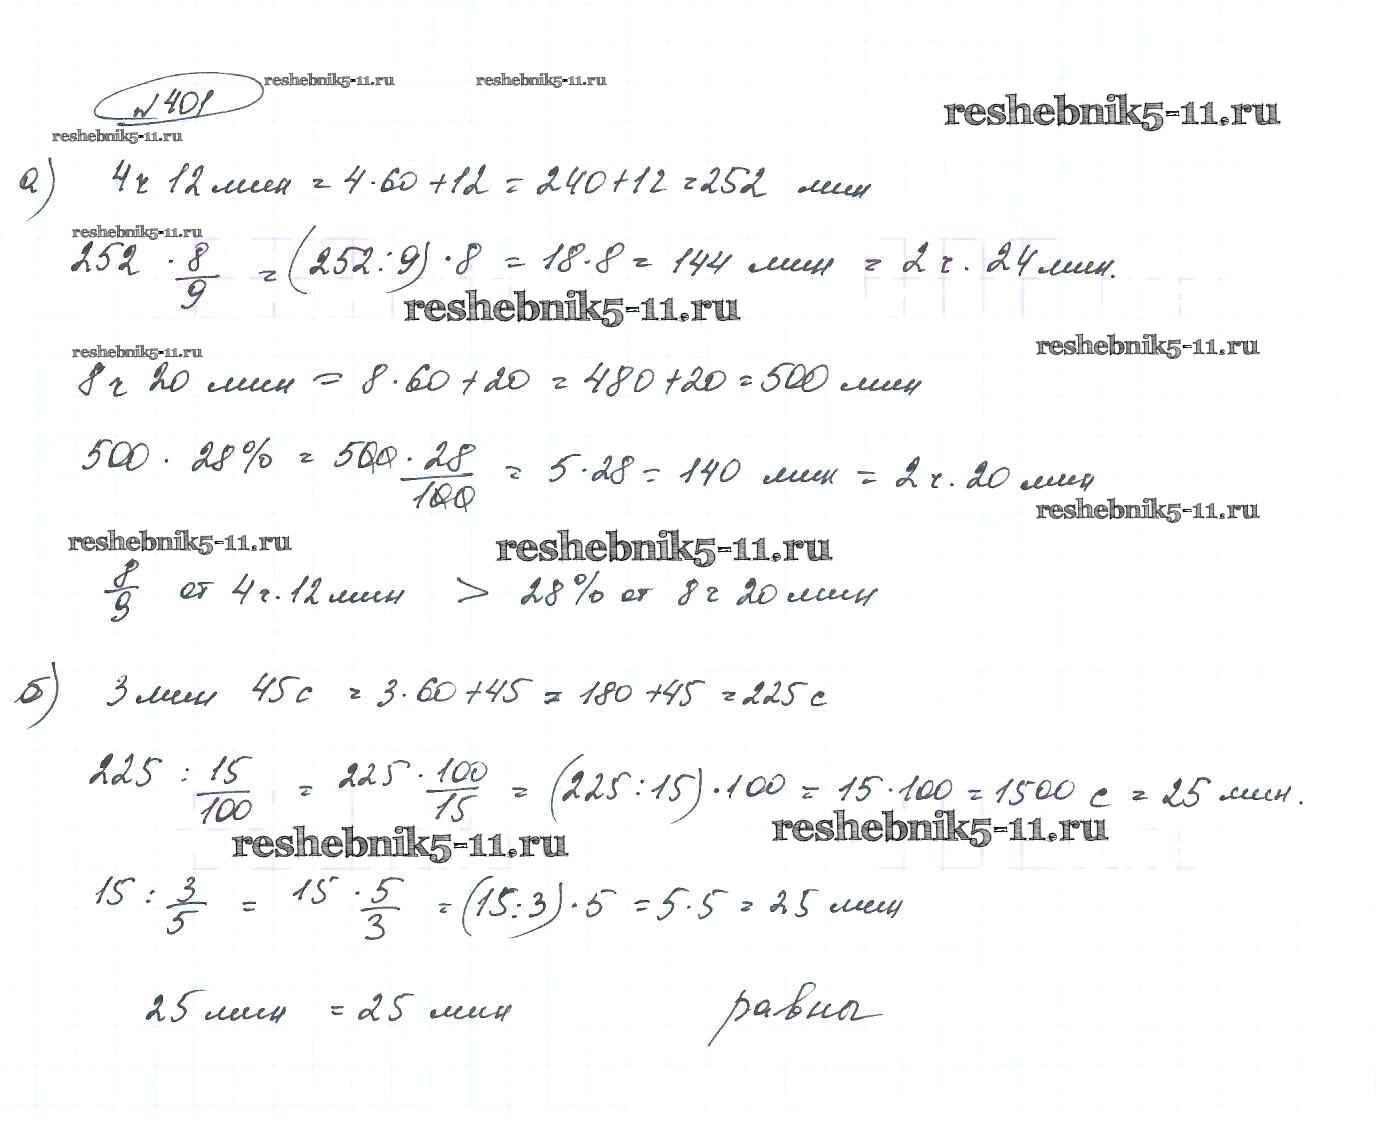 reshebnik5-11.ru reshebnik5-11.ru
№ 401
reshebnik5-11.ru
reshebnik5-11.ru
а) 4 ч 12 мин = 4·60+12 = 240+12 = 252 мин
reshebnik5-11.ru
252 · 8/9 = (252:9)·8 = 18·8 = 144 мин = 2 ч. 24 мин.
reshebnik5-11.ru
reshebnik5-11.ru
reshebnik5-11.ru
8 ч 20 мин = 8·60+20 = 480+20 = 500 мин
500 · 28% = 500 · 28/100 = 5·28 = 140 мин = 2 ч. 20 мин
reshebnik5-11.ru
reshebnik5-11.ru reshebnik5-11.ru
8/9 от 4 ч. 12 мин > 28% от 8 ч 20 мин
б) 3 мин 45 с = 3·60+45 = 180+45 = 225 с
225 : 15/100 = 225 · 100/15 = (225:15)·100 = 15·100 = 1500 с = 25 мин.
reshebnik5-11.ru reshebnik5-11.ru
15 : 3/5 = 15 · 5/3 = (15:3)·5 = 5·5 = 25 мин
25 мин = 25 мин равны